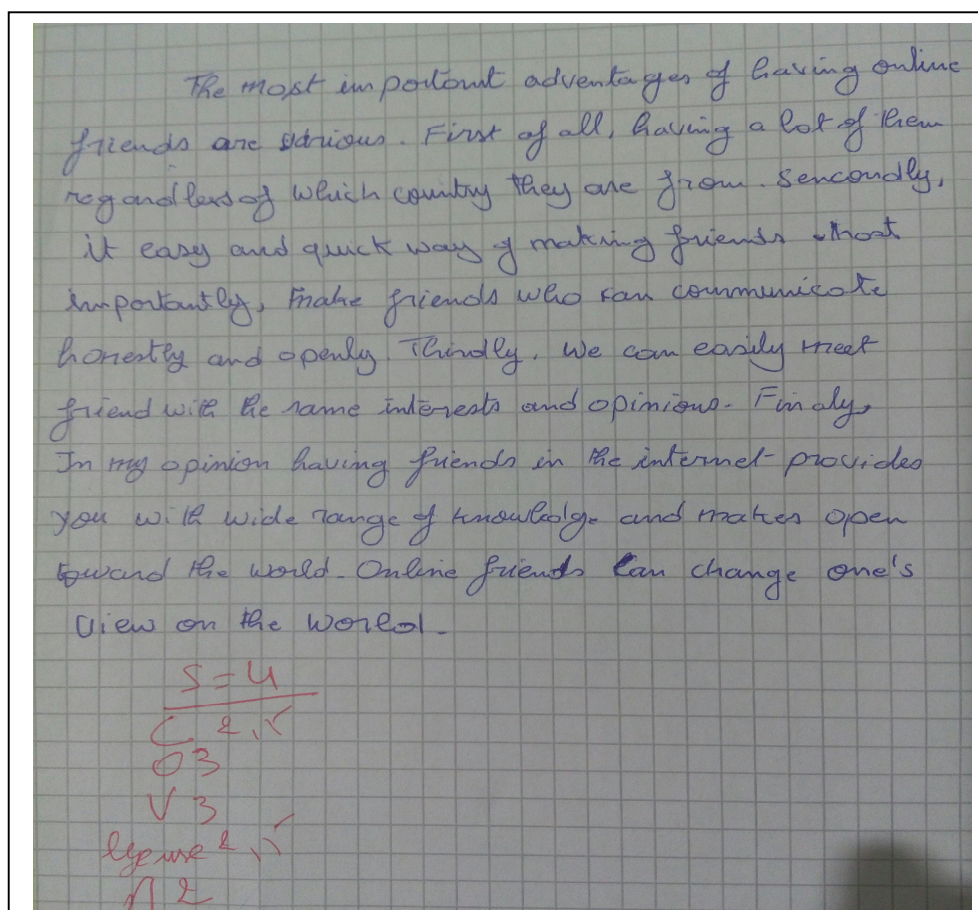 The most important adventages of having online
friends are various. First of all, having a lot of them
regardless of which country they are from. Sencondly,
it easy and quick way of making friends. Most
importantly, make friends who can communicate
honestly and openly. Thirdly, we can easily meet
friend with the same interests and opinions. Finaly,
In my opinion having friends in the internet provides
you with wide range of knowledge and makes open
toward the world. Online friends can change one's
view on the world.
S = 4
C 2,5
O 3
V 3
2,5
M 2